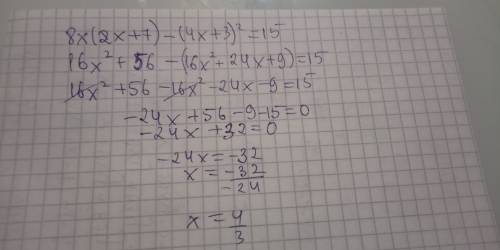 8x(2x+7)-(4x+3)²=15
16x²+56-(16x²+24x+9)=15
16x²+56-16x²-24x-9=15
-24x+56-9-15=0
-24x+32=0
-24x=-32
x=-32/-24
x=4/3